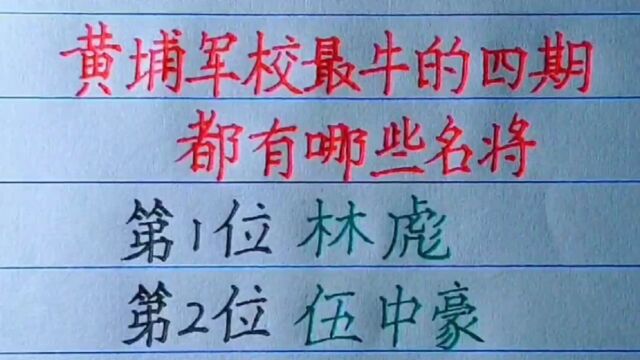 黄埔军校最牛的四期
都有哪些名将
第1位 林彪
第2位 伍中豪